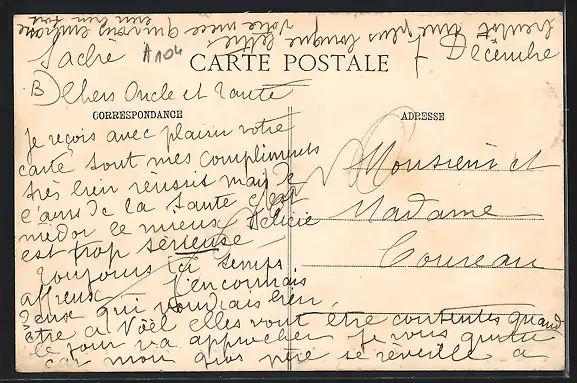 Saché A104 7 Décembre
CARTE POSTALE
B) Chers Oncle et Tante
CORRESPONDANCE
ADRESSE
Je reçois avec plaisir votre
carte tout mes compliments
très bien réussit mais je
l'aus de la Tante c'est
médor le mieux Alicie
est trop sérieuse
toujours temps
affreux j'en connais
deux qui voudrais bien
être a Noël elles vont être contentes quand
le jour va approcher je vous quitte
car mon gros père se réveille a
Monsieur et
Madame
Coureau
bientôt une plus longue lettre
votre niece qui vous embrasse
bien fort